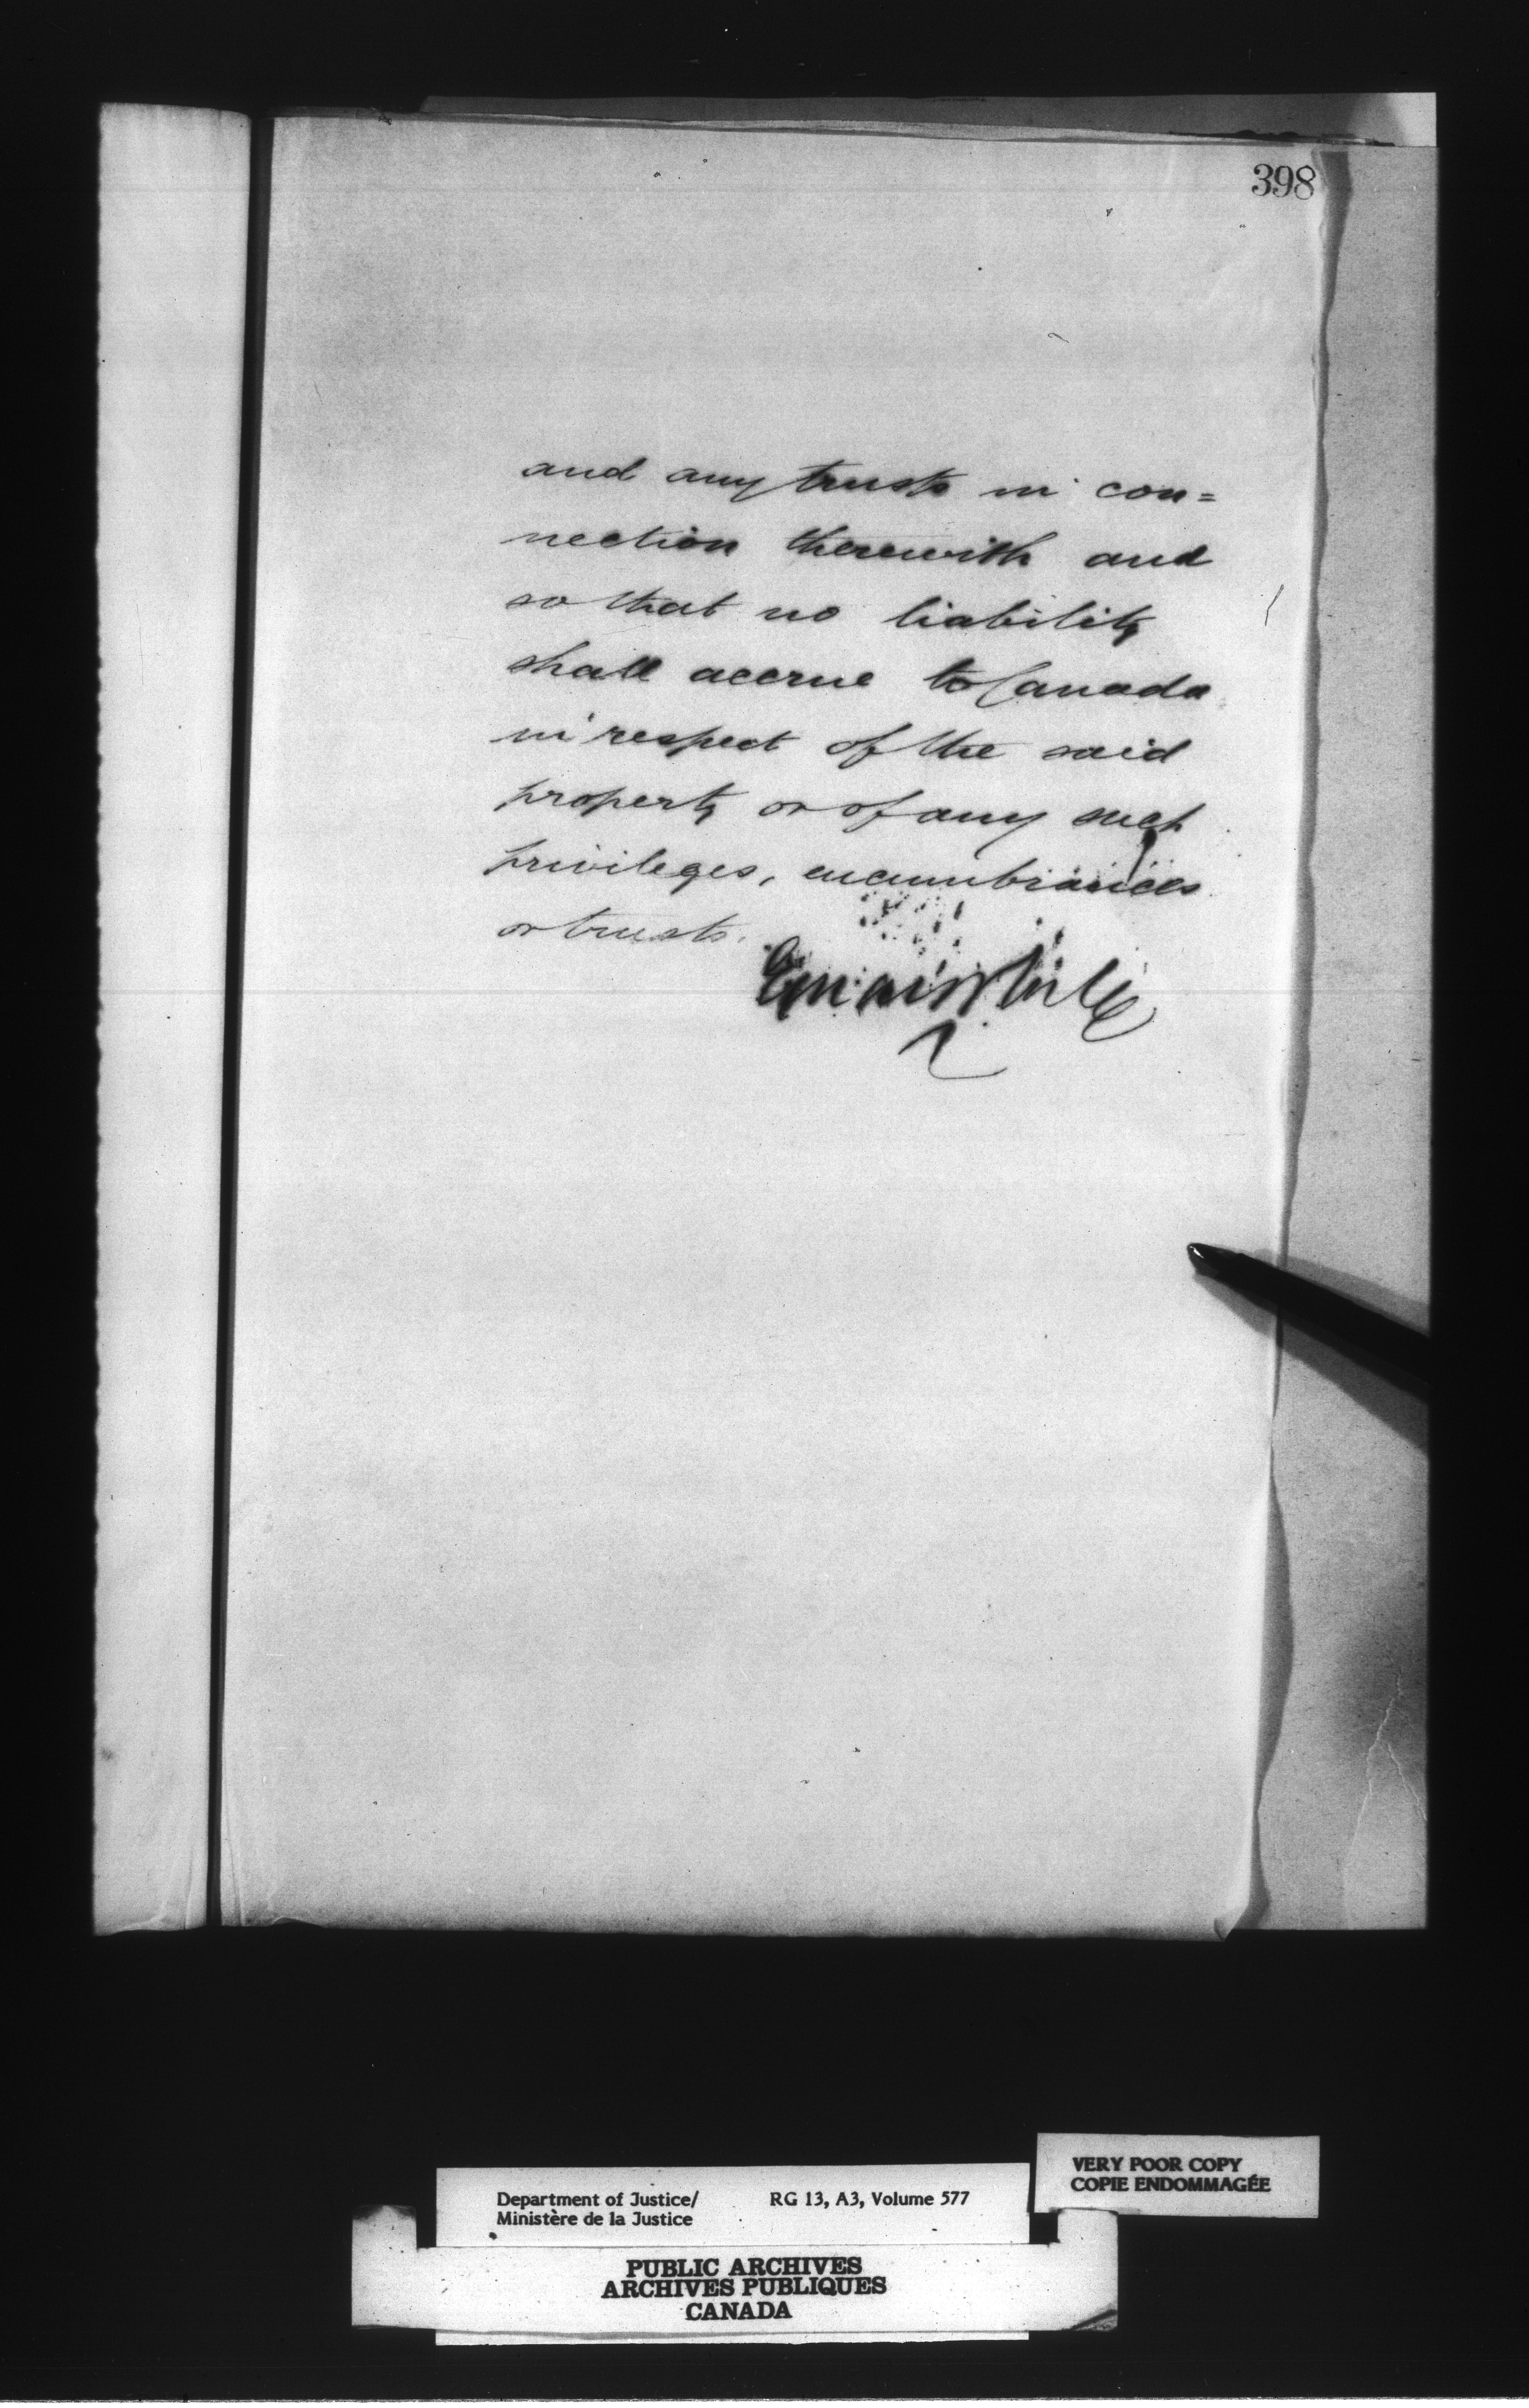 398
and any trusts in con=
nection therewith and
so that no liability
shall accrue to Canada
in respect of the said
property or of any such
privileges, encumbrances
or trusts.
VERY POOR COPY
COPIE ENDOMMAGÉE
Department of Justice/ RG 13, A3, Volume 577
Ministère de la Justice
PUBLIC ARCHIVES
ARCHIVES PUBLIQUES
CANADA